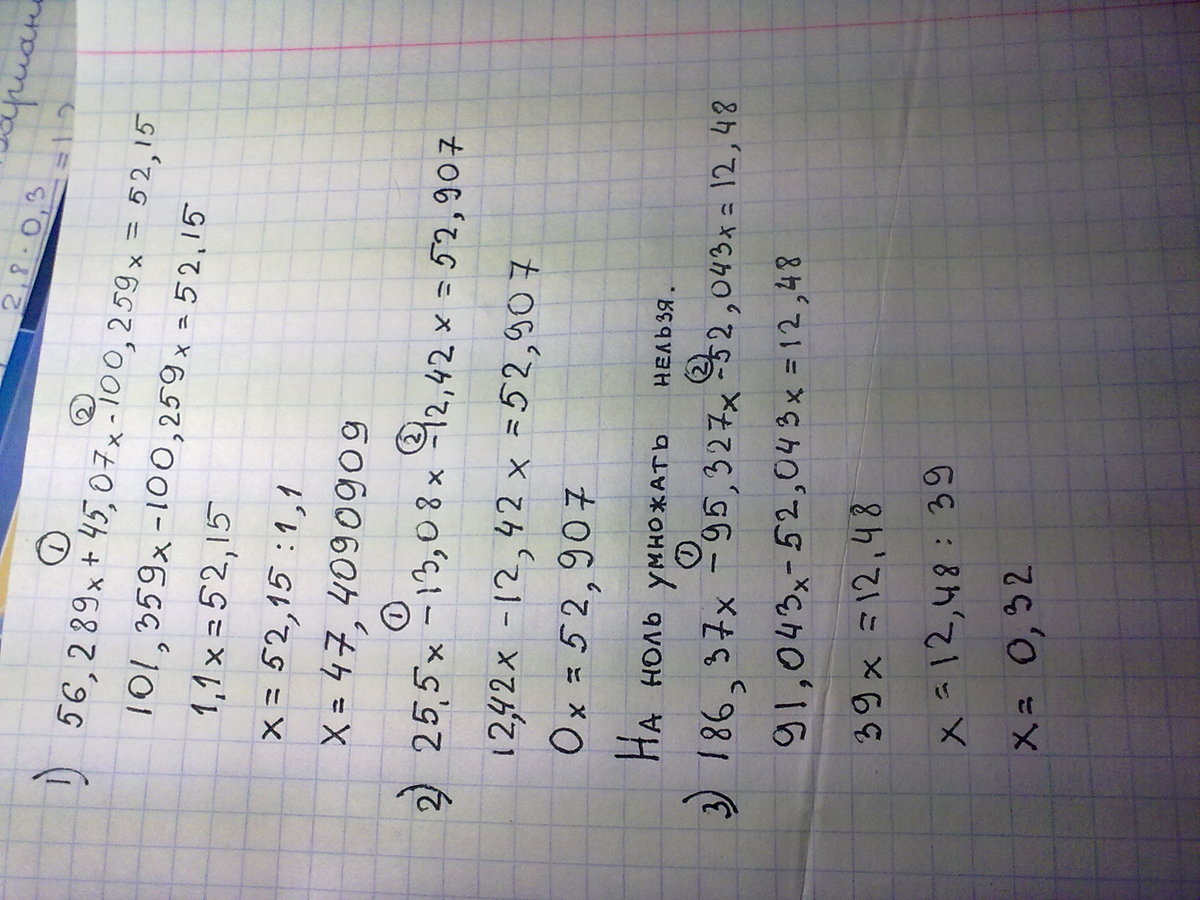 2,8 · 0,3
1) 56,289x + 45,07x - 100,259x = 52,15
① ②
101,359x - 100,259x = 52,15
1,1x = 52,15
x = 52,15 : 1,1
x = 47,4090909
2) 25,5x - 13,08x - 12,42x = 52,907
① ②
12,42x - 12,42x = 52,907
0x = 52,907
На ноль умножать нельзя.
3) 186,37x - 95,327x - 52,043x = 12,48
① ②
91,043x - 52,043x = 12,48
39x = 12,48
x = 12,48 : 39
x = 0,32